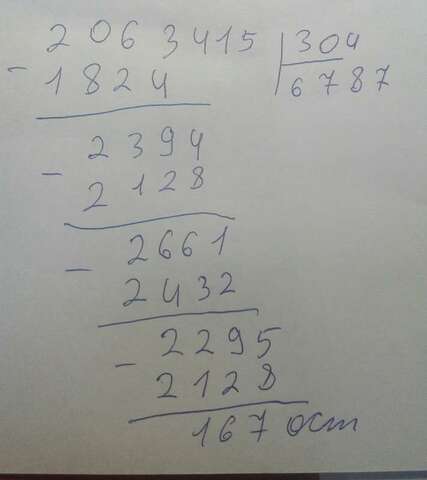 2063415 304
- 1824 6787
2394
- 2128
2661
- 2432
2295
- 2128
167 ост